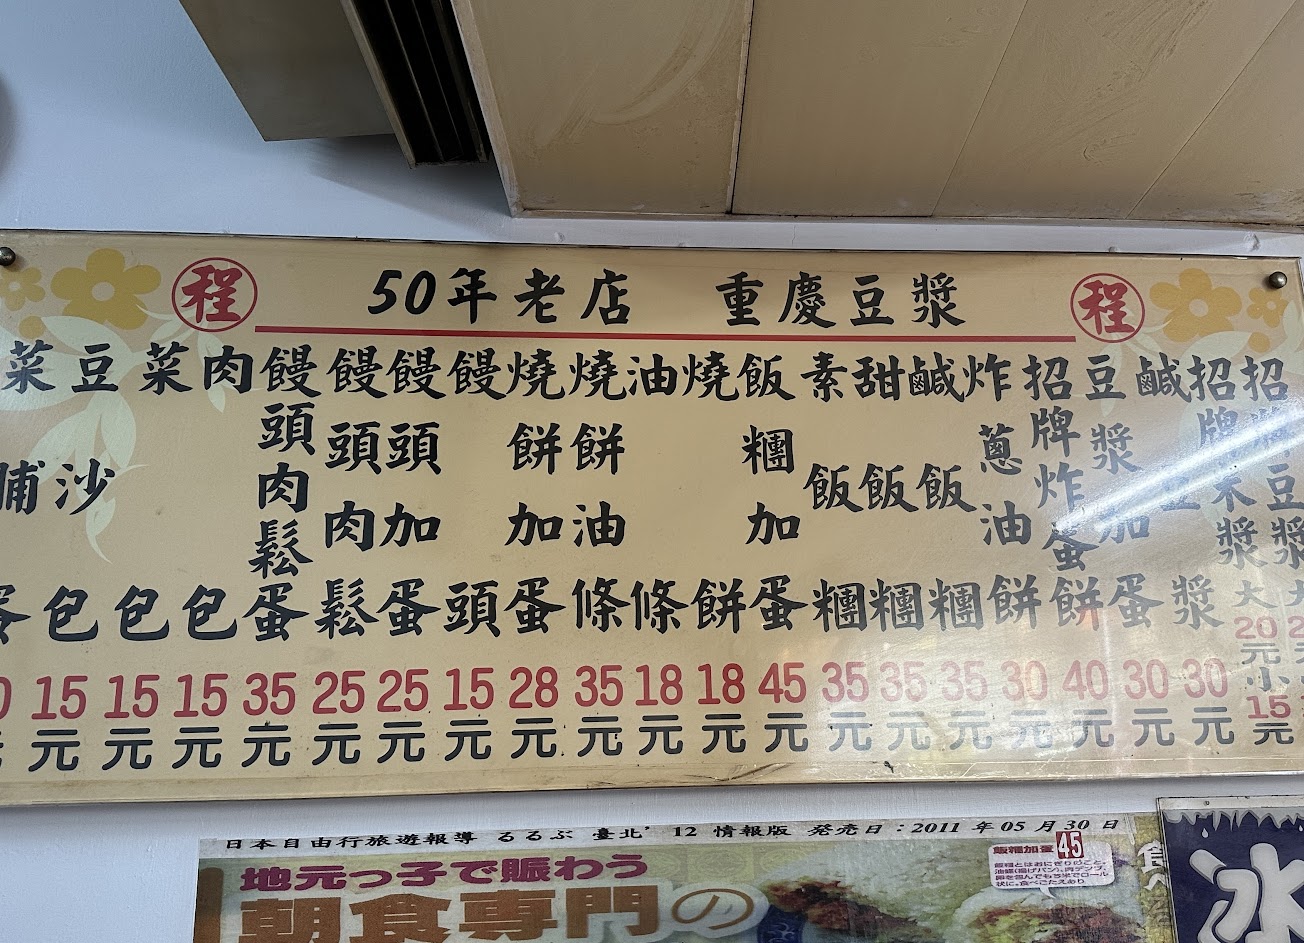 程 50年老店 重慶豆漿 程
招牌豆漿大
招牌米漿大20元小15元
鹹豆漿30元
豆漿加蛋30元
招牌炸蛋餅40元
炸蔥油餅30元
鹹飯糰35元
甜飯糰35元
素飯糰35元
飯糰加蛋45元
燒餅18元
油條18元
燒餅油條35元
燒餅加蛋28元
饅頭15元
饅頭加蛋25元
饅頭肉鬆25元
饅頭肉鬆蛋35元
肉包15元
菜包15元
豆沙包15元
菜脯蛋
日本自由行旅遊報導 るるぶ 臺北’12 情報版 発売日：2011年05月30日
地元っ子で賑わう
朝食専門の
飯糰加蛋 45
食べ
冰